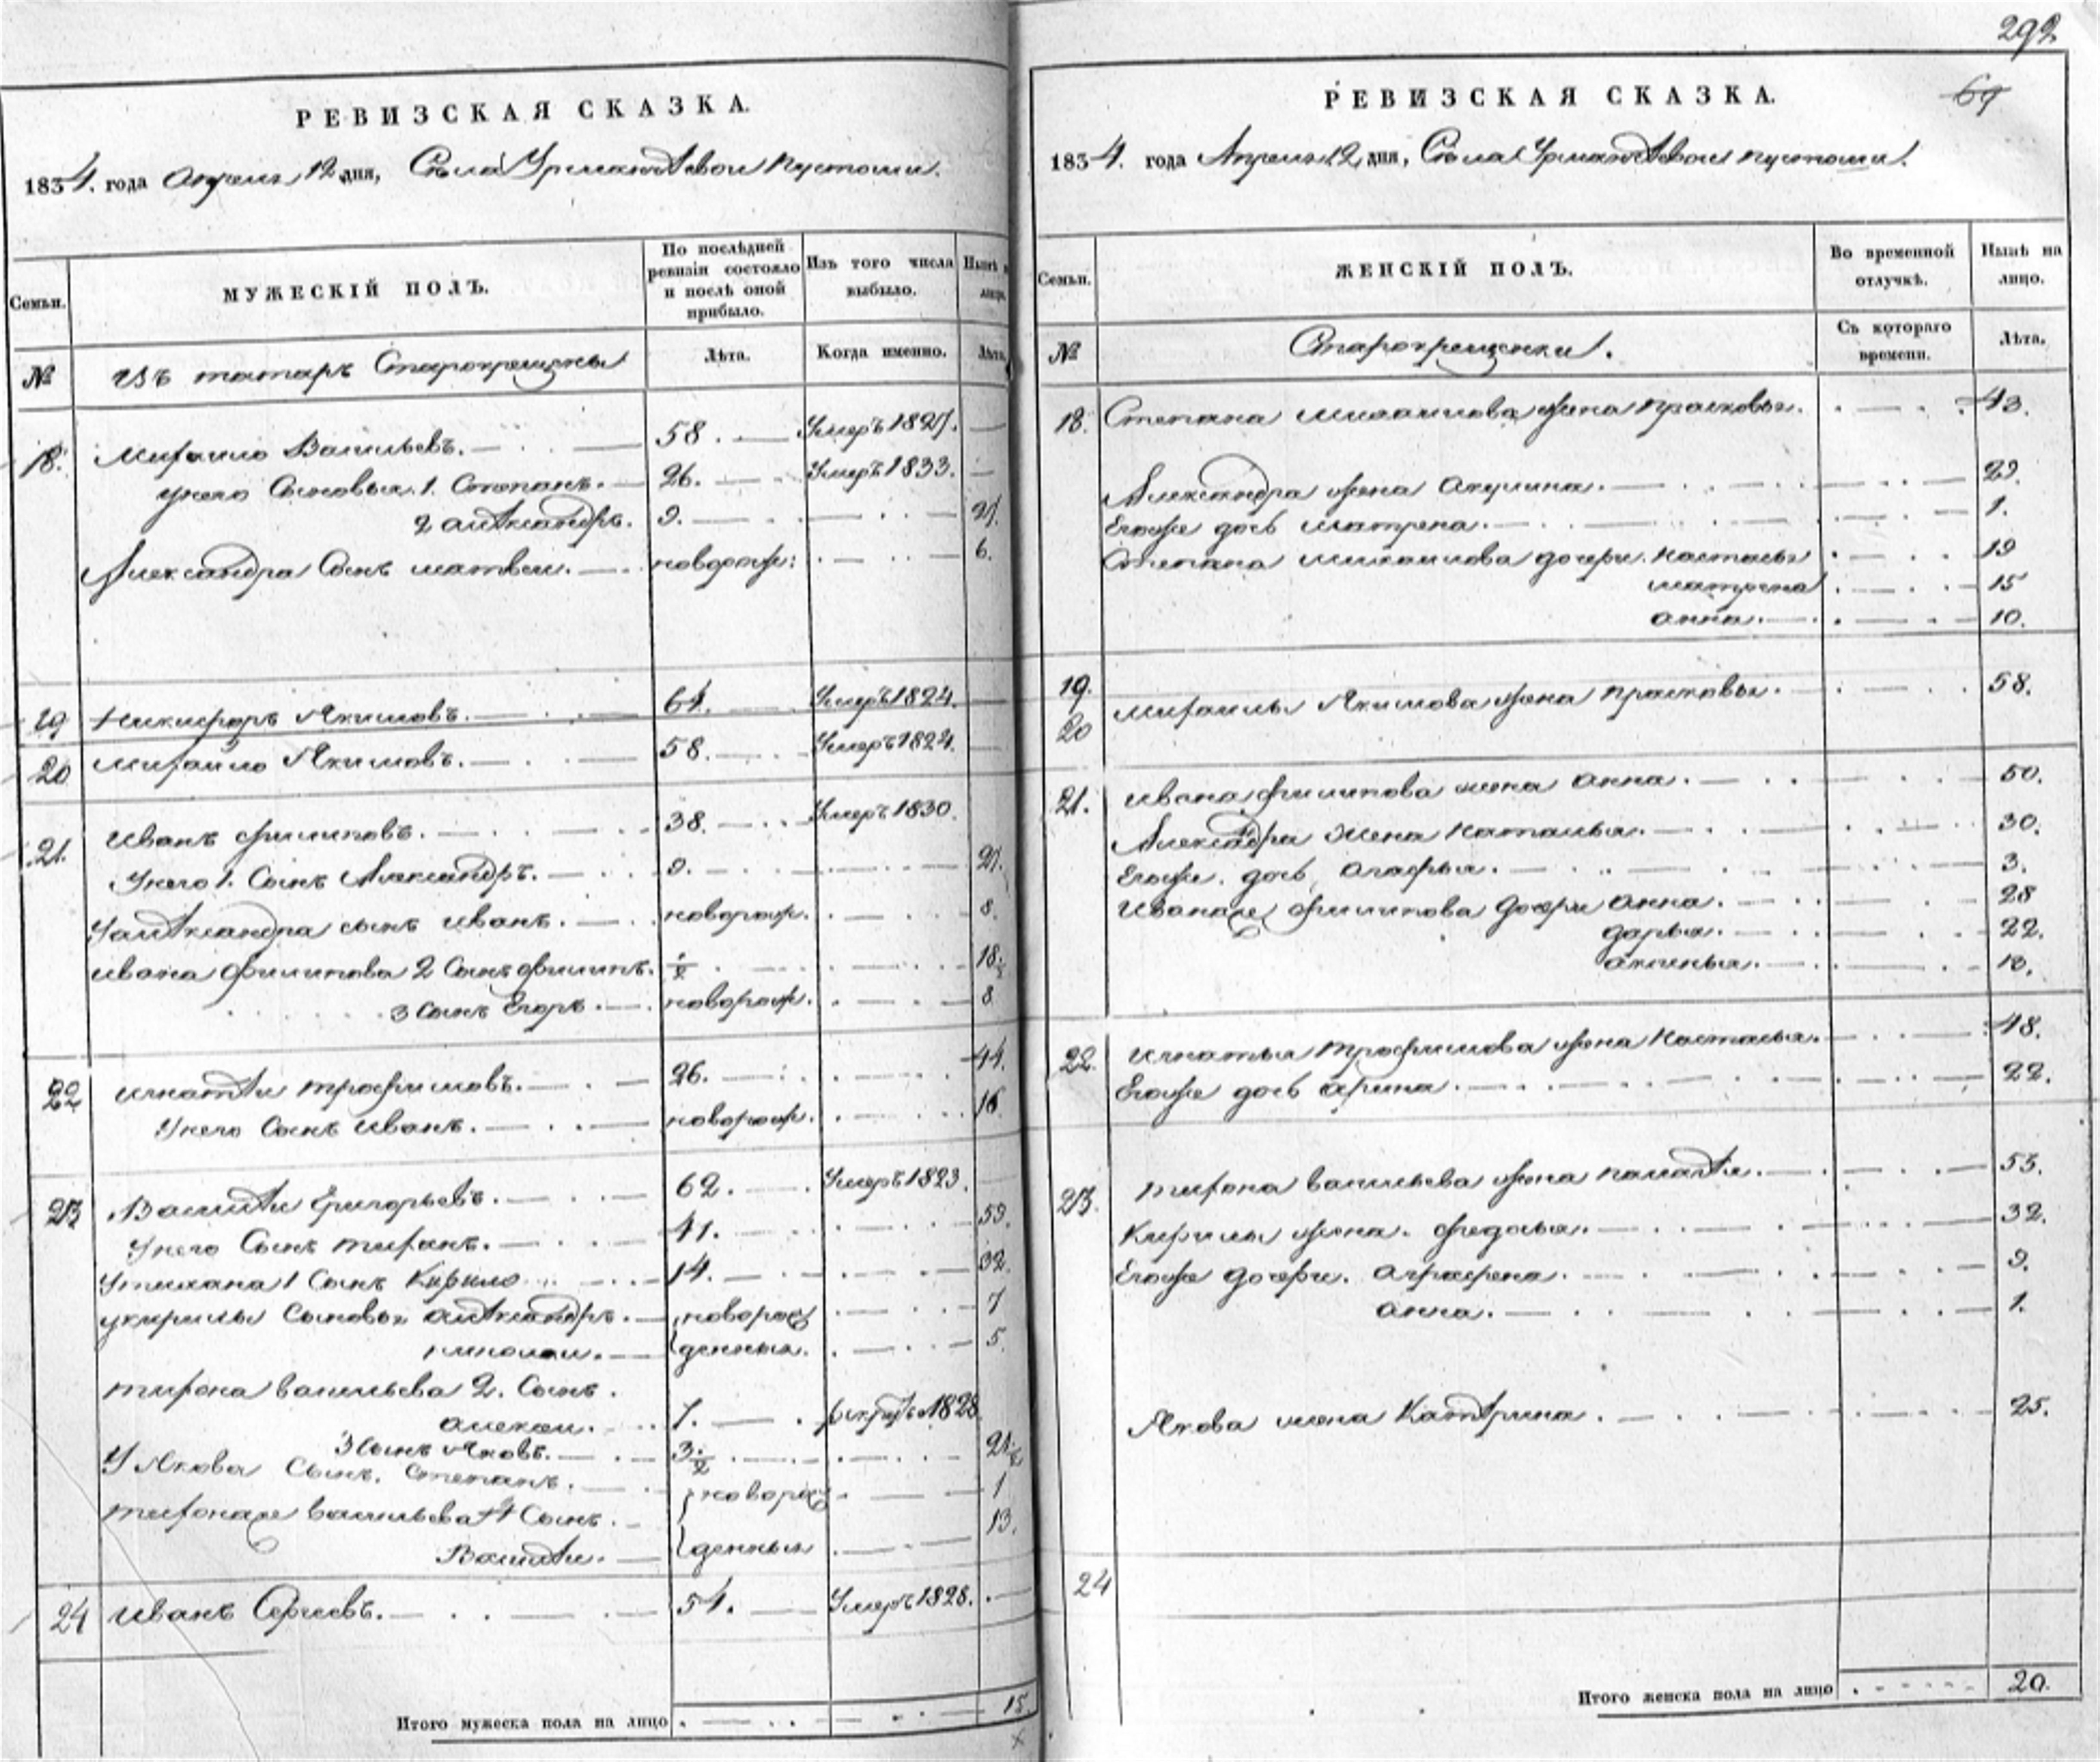 292
РЕВИЗСКАЯ СКАЗКА.
1834. года Апреля 12 дня, Села Урмандѣевой пустоши.
Семьи.
МУЖЕСКІЙ ПОЛЪ.
По послѣдней ревизіи состояло и послѣ оной прибыло.
Изъ того числа выбыло.
Нынѣ
лицо.
№
Изъ татаръ Старокрещены
Лѣта.
Когда именно.
Лѣта.
18. Михаило Васильевъ. 58. Умеръ 1827.
у него Сыновья. 1. Степанъ. 26. Умеръ 1833.
2 алѣксандръ. 9. 27.
Александра Сынъ матвеи. новорож: 6.
19 Никифоръ Якимовъ. 64. Умеръ 1824.
20 Михаило Якимовъ. 58. Умеръ 1824.
21. Иванъ филиповъ. 38. Умеръ 1830.
У него 1. Сынъ Александръ. 9. 27.
У алѣксандра сынъ иванъ. новорож. 8.
ивана филипова 2 Сынъ филипъ. 1/2 18 1/2
3 Сынъ Егоръ. новорож. 8
22 игнатѣи трофимовъ. 26. 44.
У него Сынъ иванъ. новорож. 16
23 Василѣи Григорьевъ. 62. Умеръ 1823.
У него Сынъ тихонъ. 41. 59.
У тихана 1 Сынъ Кирило 14. 32.
у кирилы Сыновья алѣксандръ. новорож 7
николаи. денныя. 5.
тихона васильева 2. Сынъ.
алексеи. 7. рекрутъ 1828
3 Сынъ Яковъ. 3 1/2 21 1/2
У Якова Сынъ. Степанъ. новорож 1
тихонаже васильева 4 Сынъ. 13.
Василѣи. денныя
24 иванъ Сергѣевъ. 54. Умеръ 1828.
Итого мужеска пола на лицо 15.
РЕВИЗСКАЯ СКАЗКА.
69
1834. года Апреля 12 дня, Села Урмандѣевой пустоши.
Семьи.
ЖЕНСКІЙ ПОЛЪ.
Во временной отлучкѣ.
Нынѣ на лицо.
№
Старокрещенки.
Съ котораго времени.
Лѣта.
18. Степана михаилова жена прасковья. 43.
Александра жена акулина. 29.
Егоже дочь матрена. 1.
Степана михаилова дочери. настасья 19
матрена 15
анна. 10.
19.
20 михаилы Якимова жена прасковья. 58.
21. ивана филипова жена анна. 50.
Александра жена наталья. 30.
Егоже. дочь, агафья. 3.
Иванаже филипова дочери анна. 28
дарья. 22.
аксинья. 13.
22. игнатья трофимова жена настасья. 48.
Егоже дочь арина. 22.
23. тихона васильева жена 53.
Кирилы жена. федосья. 32.
Егоже дочери. аграфена. 9.
анна. 1.
Якова жена Катѣрина. 25.
24
Итого женска пола на лицо 20.